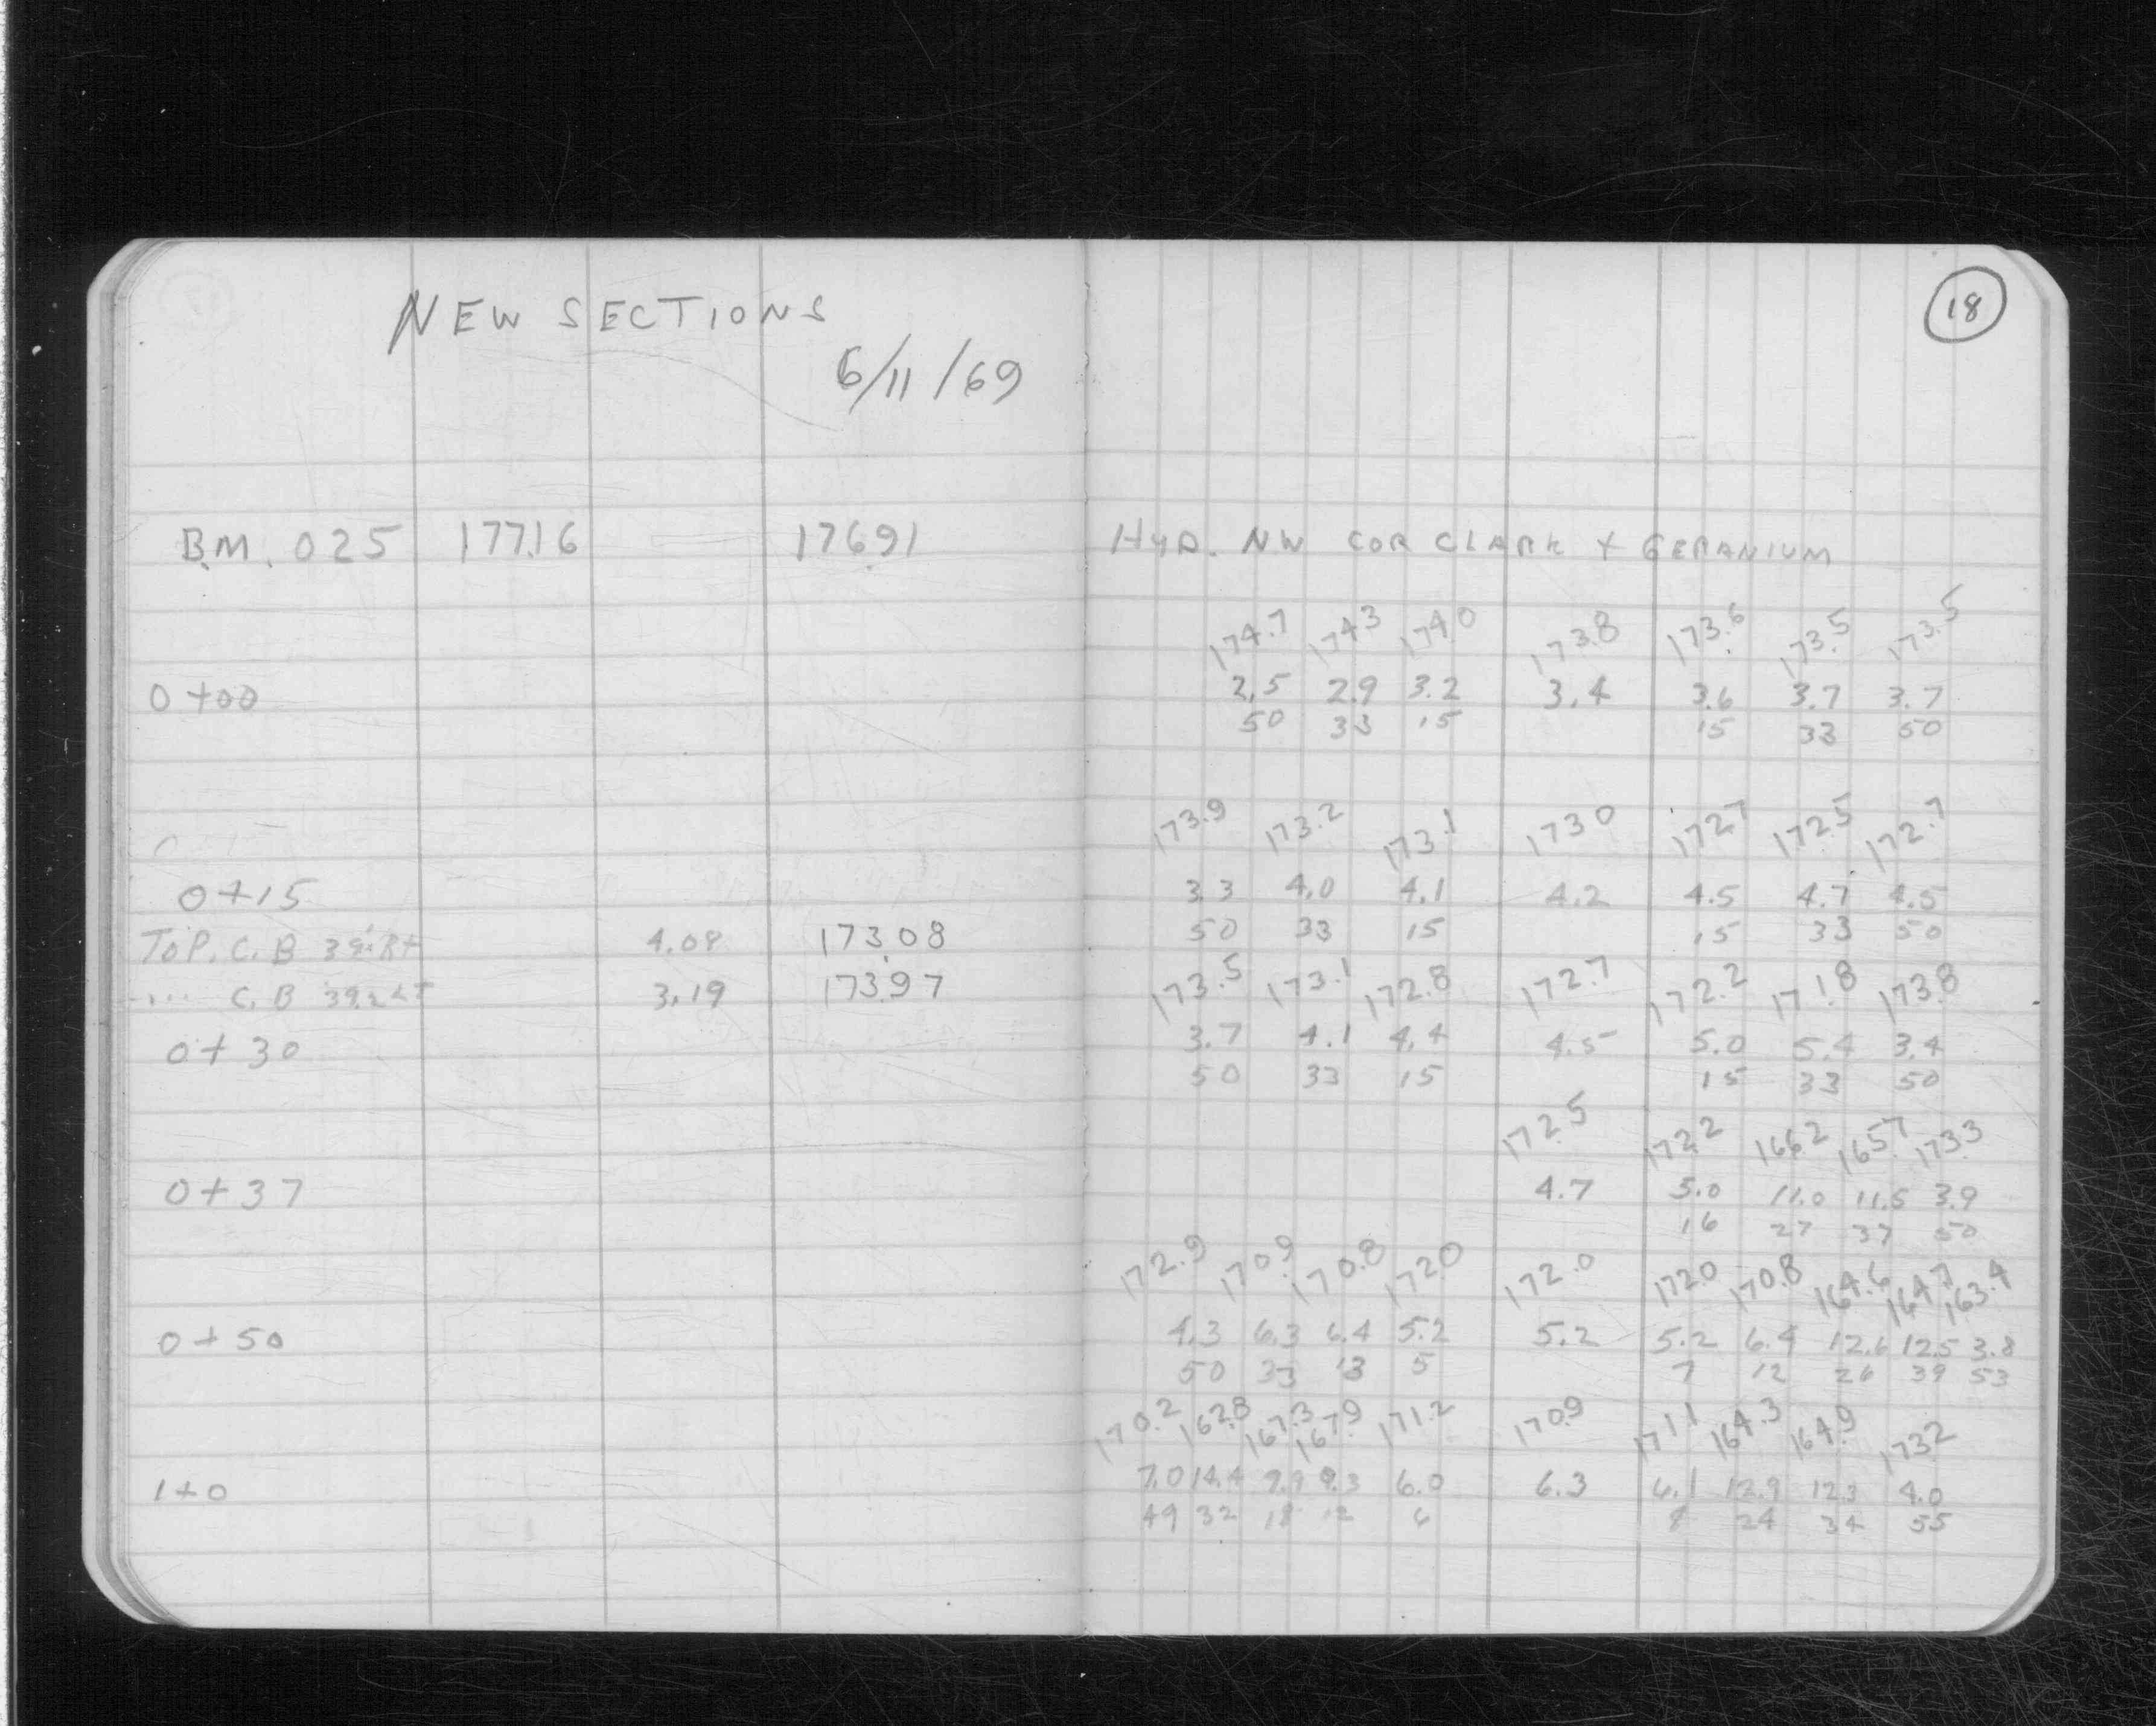 NEW SECTIONS
6/11/69
18
B.M. 025 177.16 176.91 HYD. NW COR CLARK + GERANIUM
174.7 174.3 174.0 173.8 173.6 173.5 173.5
0+00 2.5 2.9 3.2 3.4 3.6 3.7 3.7
50 33 15 15 33 50
173.9 173.2 173.1 173.0 172.7 172.5 172.7
0+15 3.3 4.0 4.1 4.2 4.5 4.7 4.5
TOP. C.B 39. Rt 4.08 173.08 50 33 15 15 33 50
" C.B 39.2 LT 3.19 173.97 173.5 173.1 172.8 172.7 172.2 171.8 173.8
0+30 3.7 4.1 4.4 4.5 5.0 5.4 3.4
50 33 15 15 33 50
172.5 172.2 166.2 165.7 173.3
0+37 4.7 5.0 11.0 11.5 3.9
16 27 37 50
172.9 170.9 170.8 172.0 172.0 172.0 170.8 164.6 164.7 163.4
0+50 4.3 6.3 6.4 5.2 5.2 5.2 6.4 12.6 12.5 3.8
50 33 13 5 7 12 26 39 53
170.2 162.8 167.3 167.9 171.2 170.9 171.1 164.3 164.9 173.2
1+0 7.0 14.4 9.9 9.3 6.0 6.3 6.1 12.9 12.3 4.0
49 32 18 12 6 8 24 34 55